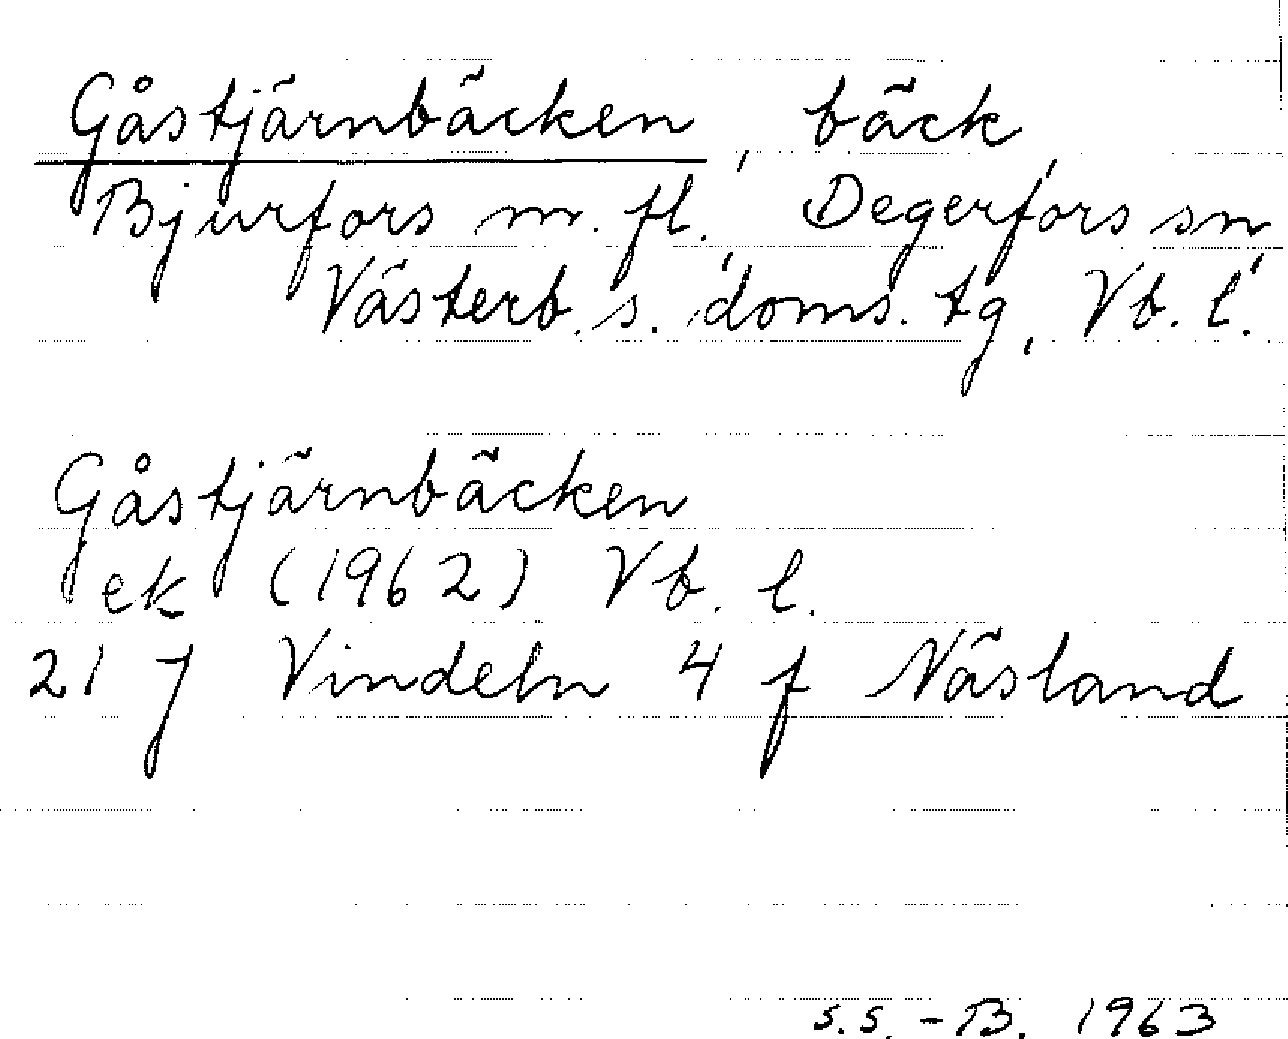 Gåstjärnbäcken, bäck,
Bjurfors m. fl., Degerfors sn,
Västerb. s. doms. tg, Vb. l.
Gåstjärnbäcken
ek (1962) Vb. l.
21 J Vindeln 4 f Näsland
s.s.-B. 1963